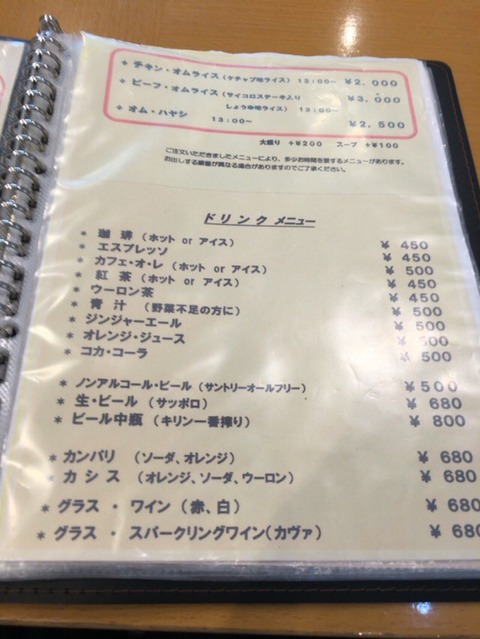 * チキン・オムライス (ケチャプ味ライス) 13:00~ ¥2,000
* ビーフ・オムライス (サイコロステーキ入り ¥3,000
しょう油味ライス) 13:00~
* オム・ハヤシ 13:00~ ¥2,500
大盛り +¥200 スープ +¥100
ご注文いただきましたメニューにより、多少お時間を要するメニューがあります。
お出しする順番が異なる場合がありますのでご了承ください。
ドリンク メニュー
* 珈琲 (ホット or アイス) ¥ 450
* エスプレッソ ¥ 450
* カフェ・オ・レ (ホット or アイス) ¥ 500
* 紅茶 (ホット or アイス) ¥ 450
* ウーロン茶 ¥ 450
* 青汁 (野菜不足の方に) ¥ 500
* ジンジャーエール ¥ 500
* オレンジ・ジュース ¥ 500
* コカ・コーラ ¥ 500
* ノンアルコール・ビール (サントリーオールフリー) ¥500
* 生・ビール (サッポロ) ¥ 680
* ビール中瓶 (キリン一番搾り) ¥ 800
* カンパリ (ソーダ、オレンジ) ¥ 680
* カシス (オレンジ、ソーダ、ウーロン) ¥ 680
* グラス・ワイン (赤、白) ¥ 680
* グラス・スパークリングワイン(カヴァ) ¥ 680